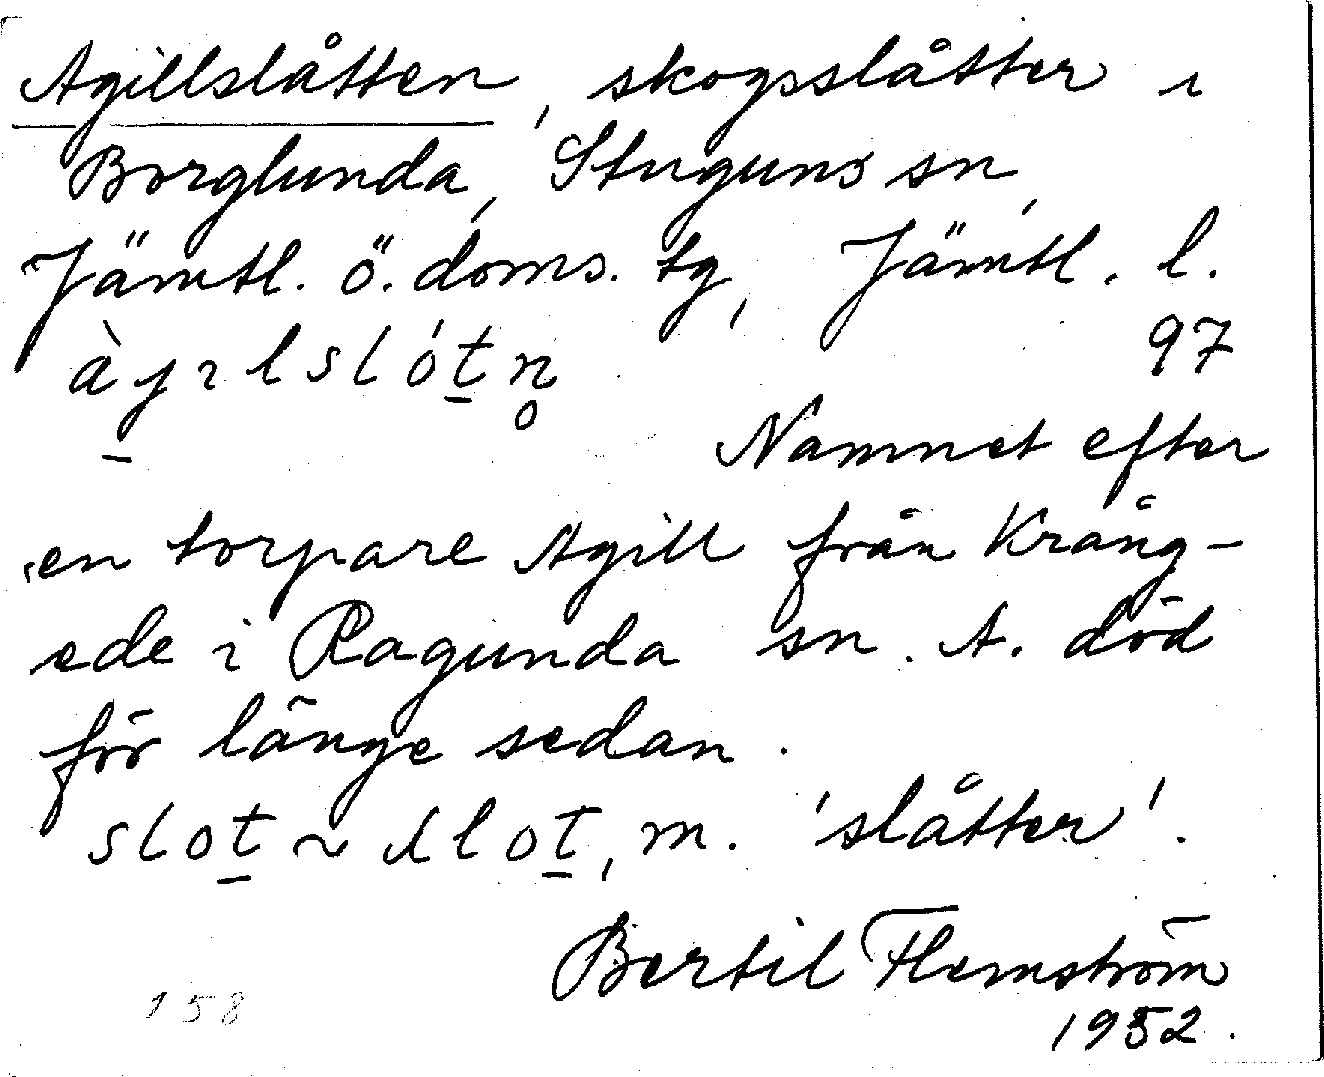 Agillslåtten, skogsslåtter i
Borglunda, Stuguns sn,
Jämtl. ö. doms. tg, Jämtl. l.
97
Namnet efter
en torpare Agill från Krång-
ede i Ragunda sn. A. död
för länge sedan.
slot ~ ʃlot, m. 'slåtter'.
Bertil Flemström
1952.
158